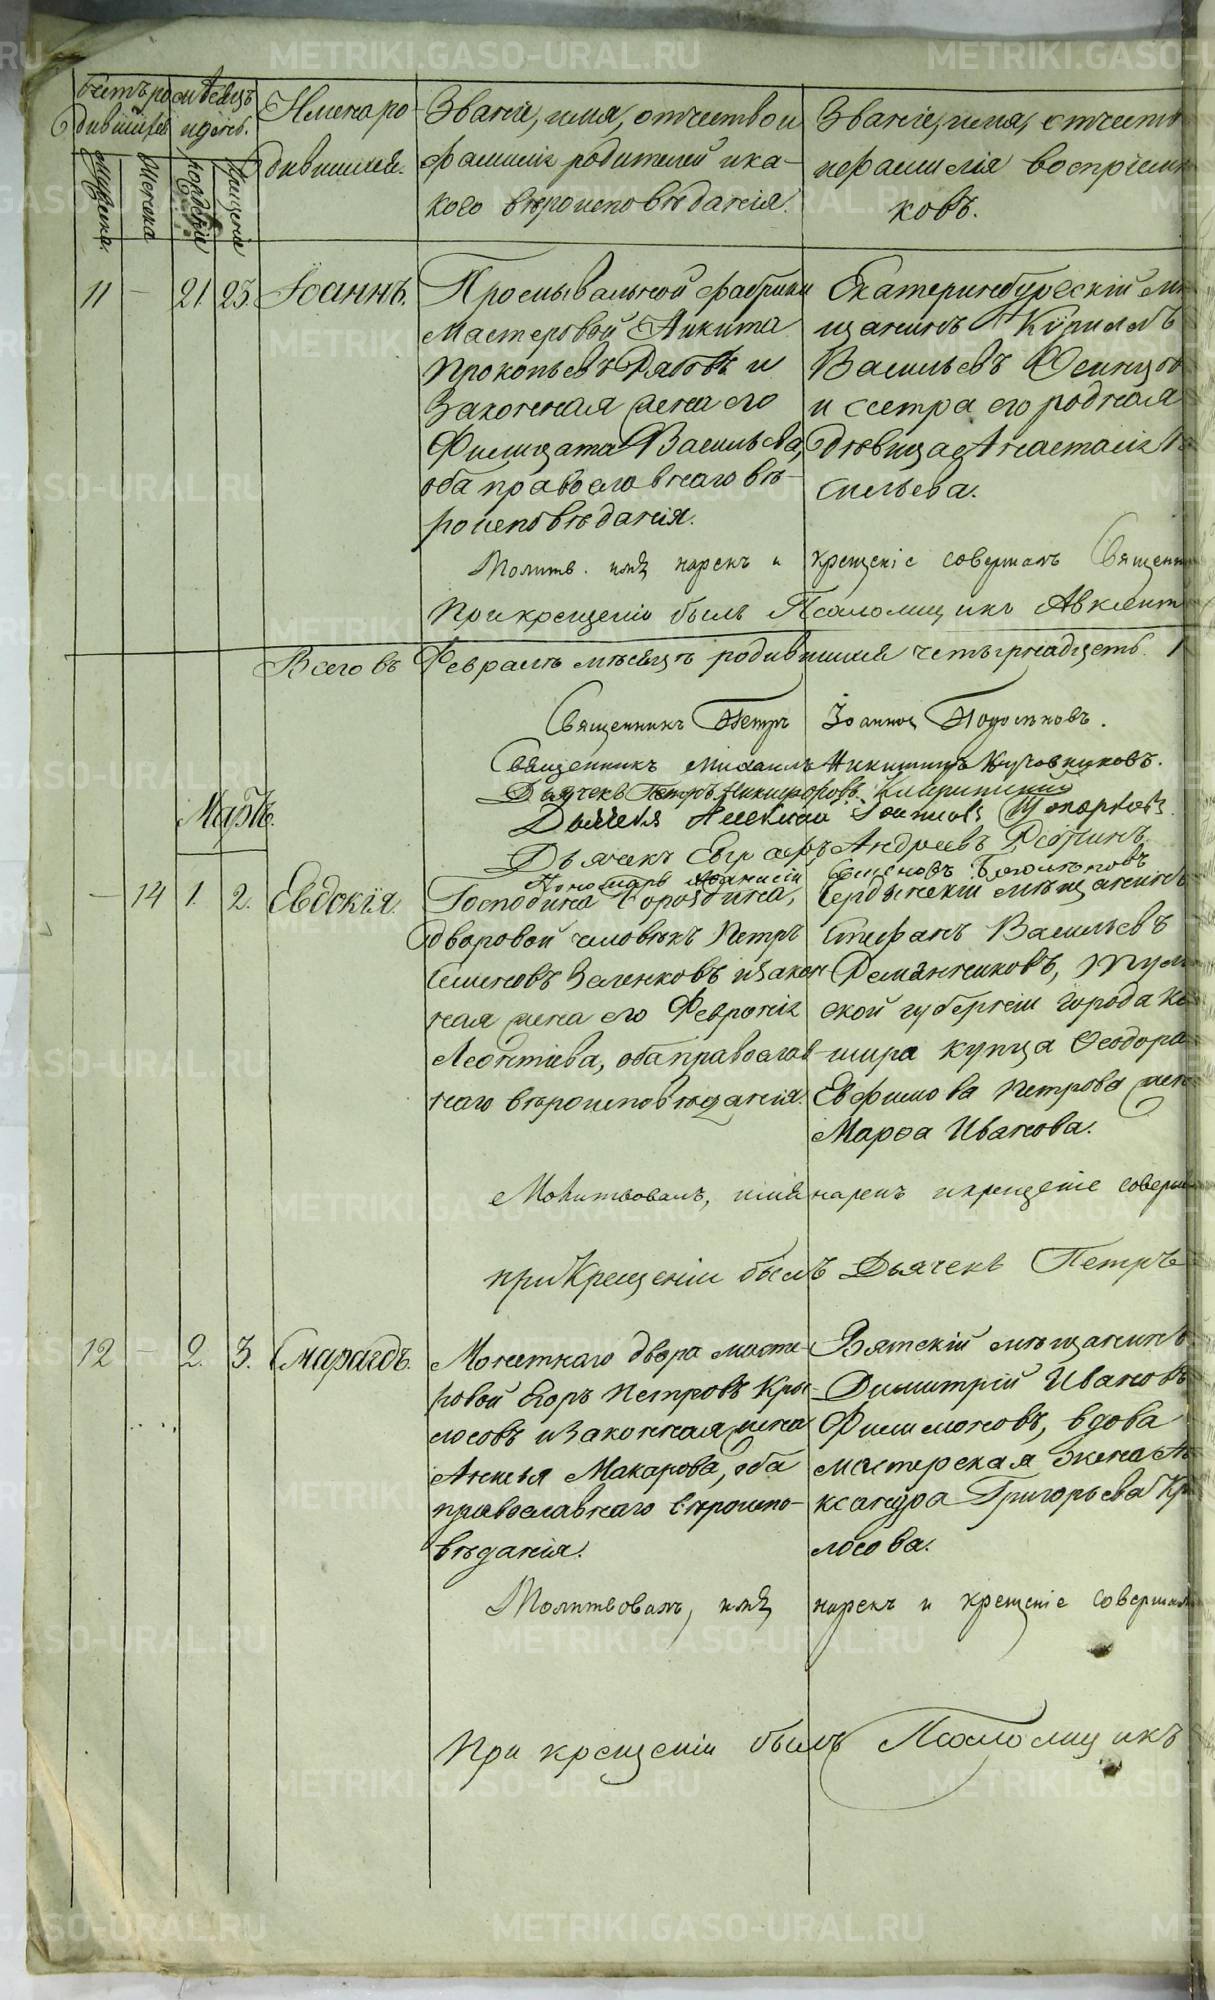 Счетъ ро- Мѣсяцъ
дившихся и день.
Имена ро-
дившихся.
Мужеска.
Женска
рожденія
крещенія
Званіе, имя, отчество и
фамилія родителей и ка-
кого вѣроисповѣданія.
Званіе, имя, отчеств
и фамилія воспріем
ковъ.
11 — 21 23. Іоаннъ.
Промывальной фабрики
мастеровой Никита
Прокопьевъ Рябовъ и
законная жена его
Филицата Васильева,
оба православнаго вѣ-
роисповѣданія.
Екатеринбургскій мѣ
щанинъ Кириллъ
Васильевъ Осинцов
и сестра его родная
дѣвица Анастасія Ва
сильева.
Молитв. имя нарекъ и крещеніе совершалъ Священ
При крещеніи былъ Псаломщикъ Авксент
Всего въ Февралѣ мѣсяцѣ родившихся четырнадцать. 1
Священникъ Петръ Іоанновъ
Священникъ Михаилъ Никитинъ
Дьячекъ Петръ Никифоровъ
Дьячекъ Алексей Іоанновъ Топорковъ
Дьячекъ Евграфъ Андреевъ Рѣпинъ.
Пономарь Афанасій Семеновъ
Мартъ.
— 14 1. 2. Евдокія.
Господина
дворовой человѣкъ Петръ
Семеновъ Зеленковъ и закон-
ная жена его Февронія
Леонтіева, оба православ-
наго вѣроисповѣданія.
Чердынскій мѣщанинъ
Стефанъ Васильевъ
Ременниковъ, Тул
ской губерніи города Ка
шира купца Ѳеодора
Евфимова Петрова жен
Марѳа Иванова.
Молитвовалъ, имя нарекъ и крещеніе соверш
при Крещеніи былъ Дьячекъ Петръ
12 — 2. 3. Смарагдъ.
Монетнаго двора масте-
ровой Егоръ Петровъ Кры-
лосовъ и законная жена
Анисья Макарова, оба
православнаго вѣроиспо-
вѣданія.
Вятскій мѣщанинъ
Димитрій Ивановъ
Филимоновъ, вдова
мастерская жена Але
ксандра Григорьева Кр
лосова.
Молитвовалъ, имя нарекъ и крещеніе совершал
При крещеніи былъ Псаломщикъ
METRIKI.GASO-URAL.RU